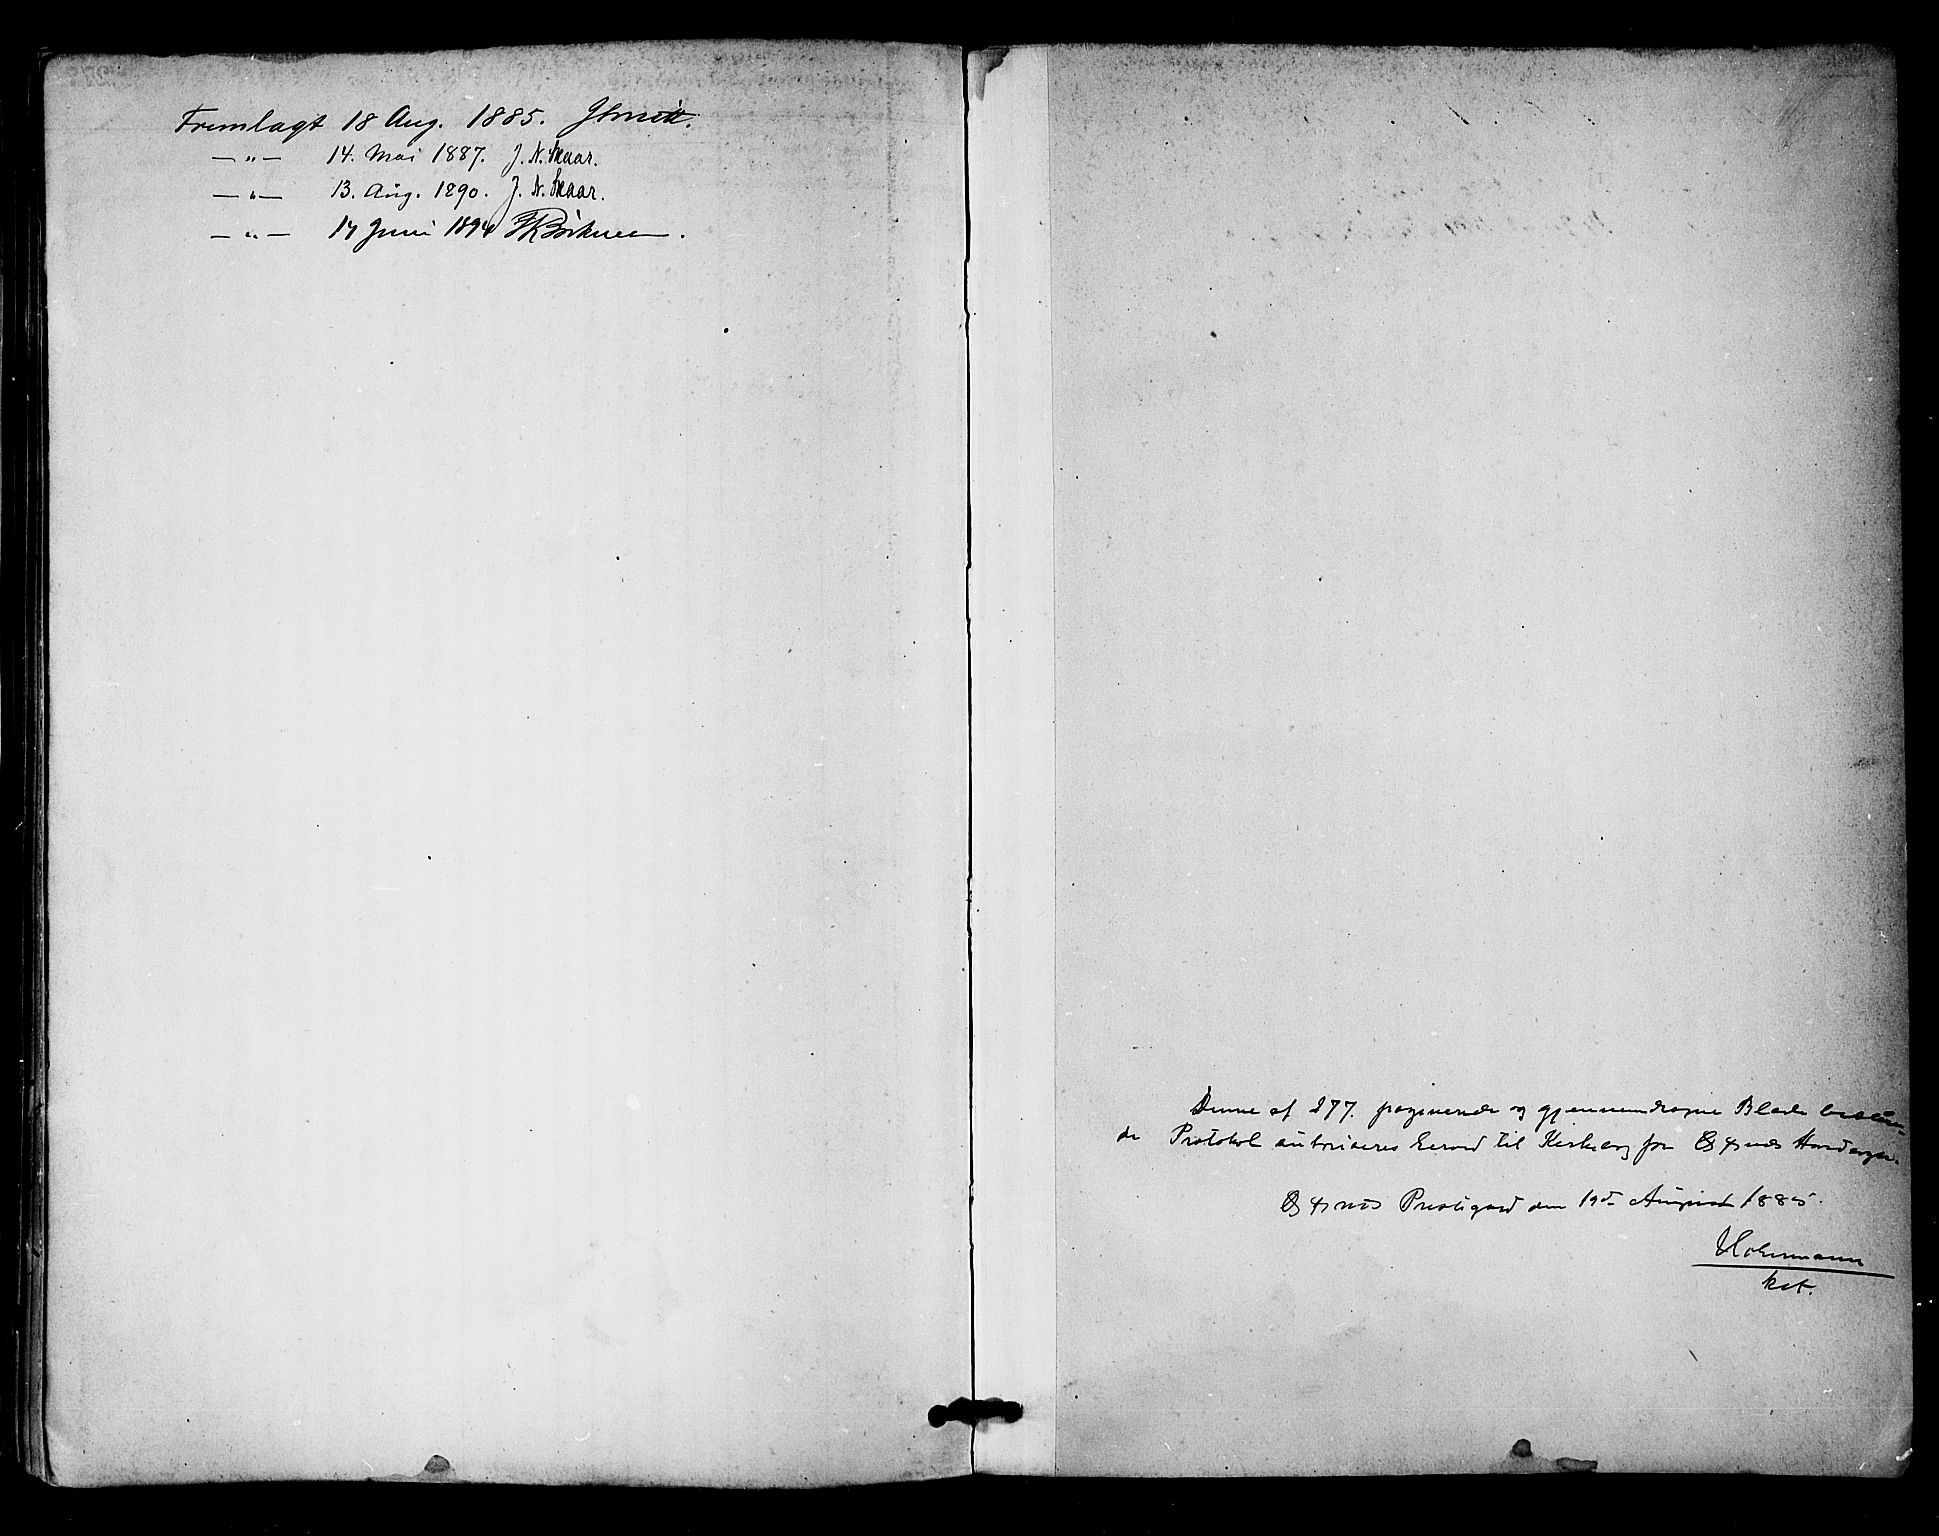 Fremlagt 18 Aug. 1885. JSmitt.
— " — 14. Mai 1887. J. N. Skaar.
— " — 13. Aug. 1890. J. N. Skaar.
— " — 14 Juni 1894
Denne af 277. paginerede og gjennemdragne Blade bestaaen-
de Protokol autoriseres herved til Kirkebog for Øxnes Hovedsogn.
Øxnes Præstegaard den 19de August 1885.
kst.